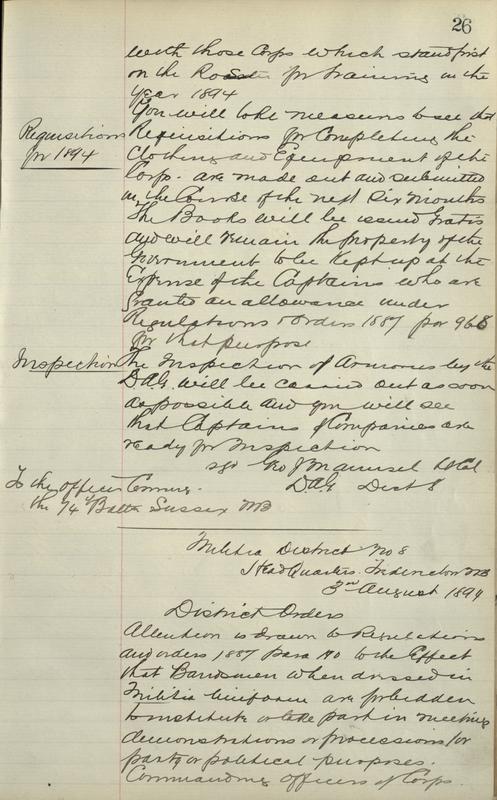 26
with those Corps which stand first
on the Roster for training in the
year 1894
You will take measures to see that
Requisitions
for 1894
Requisitions for Completing the
Clothing and Equipment of the
Corps. are made out and submitted
in the Course of the next Six Months
The Books will be issued Gratis
and will remain the property of the
Government to be Kept up at the
Expense of the Captains who are
Granted an allowance under
Regulations & Orders 1887 par 968
for that purpose
Inspection
The Inspection of Armories by the
DAG. will be carried out as soon
as possible and you will see
that Captains of Companies are
ready for Inspection
sgd Geo J Maunsel Lt Col
DAG Dist 8
To the officer Comng.
the 74th Batts Sussex NB
Militia District No 8
Head Quarters. Fredericton NB
3rd August 1894
District Orders
Attention is drawn to Regulations
and orders 1887 para to the Effect
that Bandsmen when dressed in
Militia Uniform are forbidden
to institute or take part in meetings
demonstrations or processions for
party or political purposes.
Commanding officers of Corps